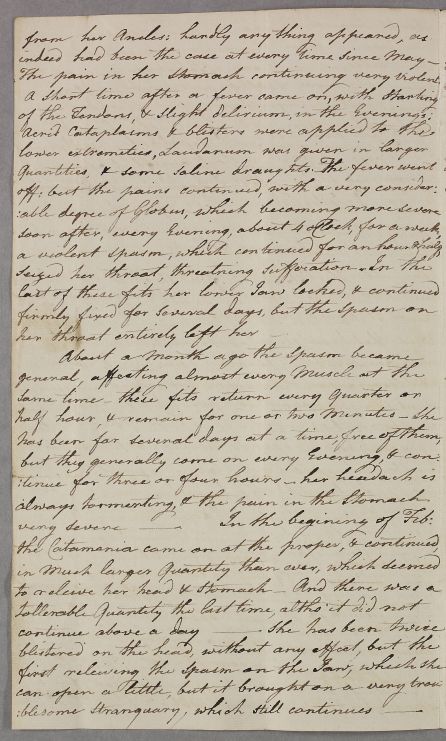 from her Ancles: hardly any thing appeared, as
indeed had been the case at every time since May —
The pain in her Stomach continuing very violent
A short time after a fever came on, with Starting
of the Tendons, & Slight delirium, in the Evenings;
Acrid Cataplasms & blisters were applied to the
lower extremeties, Laudanum was given in larger
Quantities, & some Saline draughts. The fever went
off: but the pains continued, with a very consider:
:able degree of Globus, which becoming more severe
soon after, every Evening, about 4 oClock, for a week,
a violent spasm, which continued for an hour & half
Seized her throat, threatning Suffocation. In the
last of these fits her lower Jaw locked, & continued
firmly fixed for several days, but the Spasm on
her throat entirely left her
About a Month ago the Spasm became
general, affecting almost every Muscle at the
same time — these fits return every Quarter or
half hour & remain for one or two Minutes — She
has been for several days at a time, free of them,
but they generally come on every Evening, & con:
:tinue for three or four hours — her headach is
always tormenting, & the pain in the Stomach
very severe — In the begining of Feb:
the Catamania came on at the proper, & continued
in Much larger Quantity than ever, which seemed
to releive her head & Stomach — And there was a
tollerable Quantity the last time, altho' it did not
continue above a day — She has been twice
blistered on the head, without any effect, but the
first releiving the Spasm on the Jaw, which she
can open a little, but it brought on a very trou
:blesome Stranguary, which still continues —